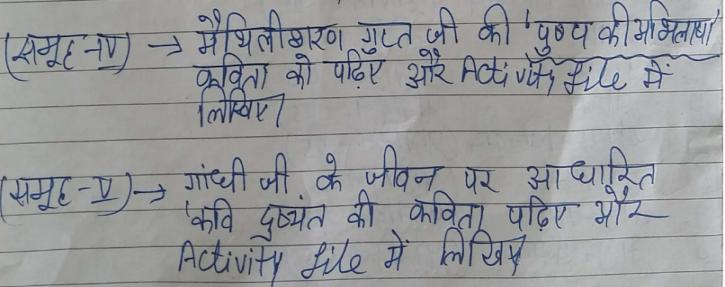 (समूह-IV) → मैथिलीशरण गुप्त जी की 'पुष्प की अभिलाषा'
कविता को पढ़िए और Activity file में
लिखिए।
(समूह-V) → गांधी जी के जीवन पर आधारित
'कवि दुष्यंत की कविता पढ़िए और
Activity file में लिखिए